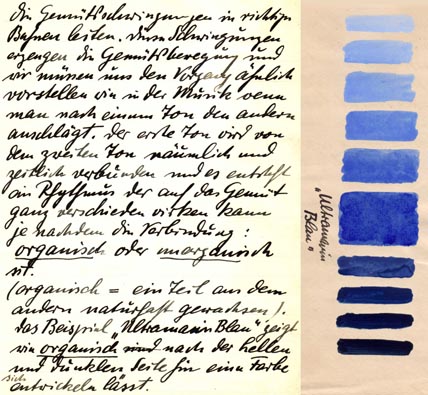 die Gemütsschwingungen in richtige
Bahnen leiten. diese Schwingungen
erzeugen die Gemütsbewegung und
wir müssen uns den Vorgang ähnlich
vorstellen wie in der Musik wenn
man nach einem Ton den andern
anschlägt. der erste Ton wird von
dem zweiten Ton räumlich und
zeitlich verbunden und es entsteht
ein Rhythmus der auf das Gemüt
ganz verschieden wirken kann
je nachdem die Verbindung:
organisch oder unorganisch
ist.
(organisch = ein Teil aus dem
andern naturhaft gewachsen).
das Beispiel „Ultramarin Blau" zeigt
wie organisch nach der hellen
und dunklen Seite hin eine Farbe
sich entwickeln lässt.
„Ultramarin
Blau"